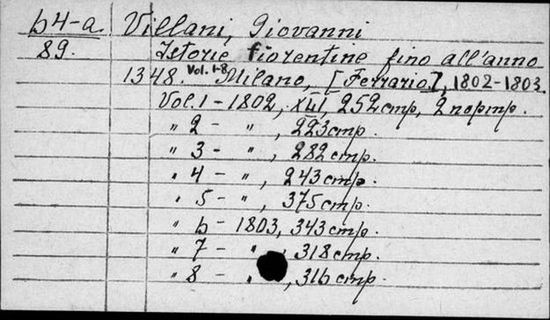 b4-a Villani, Giovanni
89. Istorie fiorentine fino all'anno
1348. Vol. 1-8 Milano, [Ferrario], 1802-1803.
Vol. 1 - 1802, XLII, 252 стр, 2 ненстр.
" 2 - " , 223 стр.
" 3 - " , 282 стр.
" 4 - " , 243 стр.
" 5 - " , 375 стр.
" 6 - 1803, 343 стр.
" 7 - " , 318 стр.
" 8 - " , 316 стр.